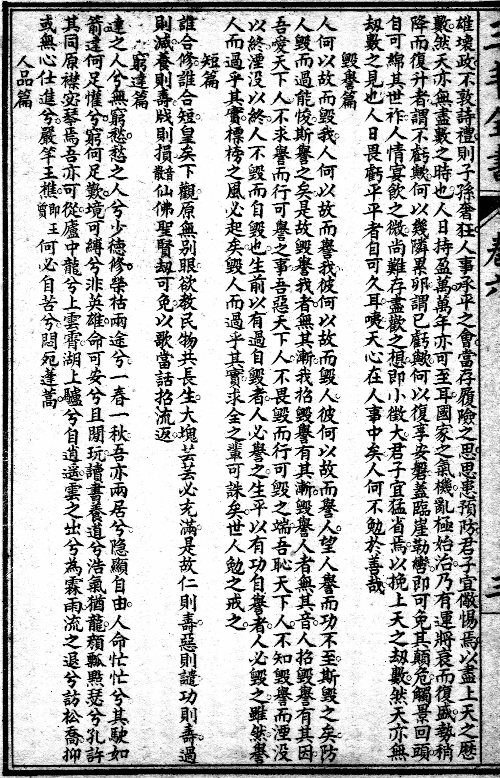 雄壞政不敦詩禮則子孫奢狂人事乎平之會當存履險之思思患預防君子宜儆惕焉以盡上天之歷
數然天亦無盡數之時也人日持盈萬萬年亦可至耳國家之氣機亂極始治乃有運將衰而復盛勢稍
降而復升者謂不虧歟何以幾隣累卵謂已虧歟何以復享安磐蓋臨崖勒轡即可免其顛危觸景回頭
自可綿其世祚人情宴飲之微尚難存盡歡之想即小徵大君子宜猛省焉以挽上天之刼數然天亦無
刼數之見也人日畏虧平平者自可久耳噫天心在人事中矣人何不勉於善哉
毀譽篇
人何以故而毀我人何以故而譽我彼何以故而毀人彼何以故而譽人望人譽而功不至斯毀之矣防
人毀而過能悛斯譽之矣是故毀譽我者無其漸我招毀譽有其漸毀譽人者無其音人招毀譽有其因
吾愛天下人不求譽而行可譽之事吾惡天下人不畏毀而行可毀之端吾恥天下人不知毀譽而湮没
以終湮没以終人不毀而自毀也生前以有過自毀者人必譽之生平以有功自譽者人必毀之雖然譽
人而過乎其實標榜之風必起矣毀人而過乎其實求全之輩可誅矣世人勉之戒之
短篇
誰合修誰合短皇矣下觀原無別眼欲教民物共長生大塊芸芸必充滿是故仁則壽惡則譴功則壽過
則減養則壽戕則損䜁仙佛聖賢刼可免以歌當話招流返
窮達篇
達之人兮無窮愁愁之人兮少德修榮枯兩途兮一春一秋吾亦兩居兮隱顯自由人命忙忙兮其駛如
箭達何足懽兮窮何足歎境可縛兮非英雄命可安兮且閒玩讀書養道兮浩氣猶龍顏瓢點瑟兮孔許
其同原襟宓琴焉吾亦可從廬中龍兮上雲霄湖上驢兮自逍遙雲之出兮為霖雨流之退兮訪松喬抑
或無心仕進兮嚴竿王樵即王賀何必自苦兮悶死蓬蒿
人品篇